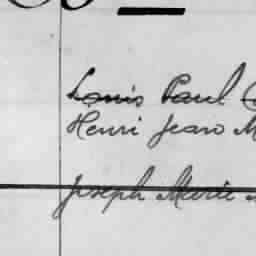 Louis Paul
Henri Jean M
Joseph Marie